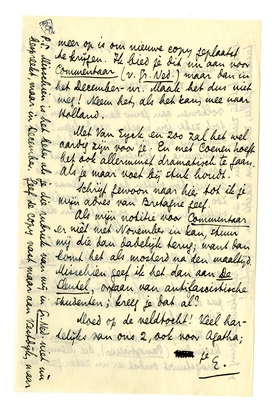 meer op is om nieuwe copy geplaatst
te krijgen. Ik bied je dit nu aan voor
Commentaar (v. Gr. Ned.) maar dan in
het December-nr. Maak het dus niet
weg! Neem het, als het kan, mee naar
Holland.
Met Van Eyck en zoo zal het wel
aardig zijn voor je. En met Coenen hoeft
het ook allerminst dramatisch te gaan.
Als je maar voet bij stuk houdt.
Schrijf gewoon naar hier tot ik je
mijn adres van Bretagne geef.
Als mijn notitie voor Commentaar
er niet met November in kan, stuur
mij die dan dadelijk terug; want dan
komt het als mosterd na den maaltijd.
Misschien geef ik het dan aan De
Sleutel, orgaan van antifascistische
studenten; kreeg je dat al?
Moed op de veldtocht! Veel har-
telijks van ons 2, ook voor Agatha;
je E.
P.S. Misschien is het beter als je die rubriek van mij in Gr. Ned. niet nu
maar in December